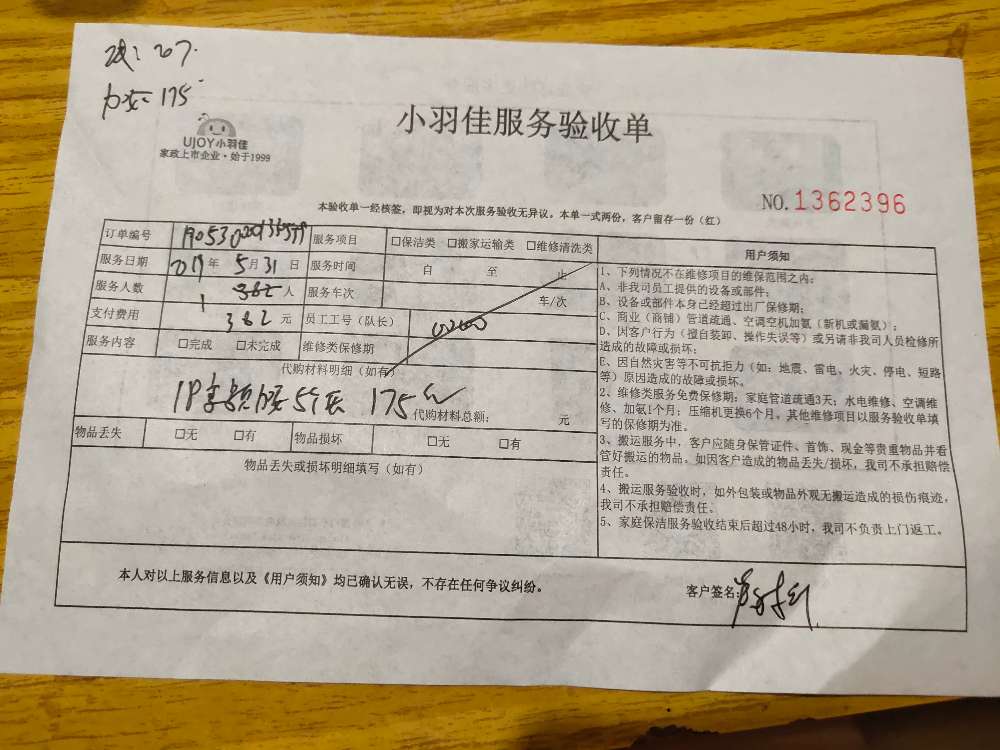 207.
175
UJOY小羽佳
家政上市企业·始于1999
小羽佳服务验收单
NO.1362396
本验收单一经核签，即视为对本次服务验收无异议。本单一式两份，客户留存一份（红）
订单编号 服务项目 □保洁类 □搬家运输类 □维修清洗类
服务日期 2019年 5月31日 服务时间 自 至 止
服务人数 1 382 人 服务车次 车/次
支付费用 382 元 员工工号（队长）
服务内容 □完成 □未完成 维修类保修期
代购材料明细（如有）
175元 代购材料总额： 元
物品丢失 □无 □有 物品损坏 □无 □有
物品丢失或损坏明细填写（如有）
用户须知
1、下列情况不在维修项目的维保范围之内：
A、非我司员工提供的设备或部件；
B、设备或部件本身已经超过出厂保修期；
C、商业（商铺）管道疏通、空调空机加氨（新机或漏氨）；
D、因客户行为（擅自装卸、操作失误等）或另请非我司人员检修所
造成的故障或损坏；
E、因自然灾害等不可抗拒力（如：地震、雷电、火灾、停电、短路
等）原因造成的故障或损坏。
2、维修类服务免费保修期：家庭管道疏通3天；水电维修、空调维
修、加氨1个月；压缩机更换6个月。其他维修项目以服务验收单填
写的保修期为准。
3、搬运服务中，客户应随身保管证件、首饰、现金等贵重物品并看
管好搬运的物品。如因客户造成的物品丢失/损坏，我司不承担赔偿
责任。
4、搬运服务验收时，如外包装或物品外观无搬运造成的损伤痕迹，
我司不承担赔偿责任。
5、家庭保洁服务验收结束后超过48小时，我司不负责上门返工。
本人对以上服务信息以及《用户须知》均已确认无误，不存在任何争议纠纷。
客户签名：